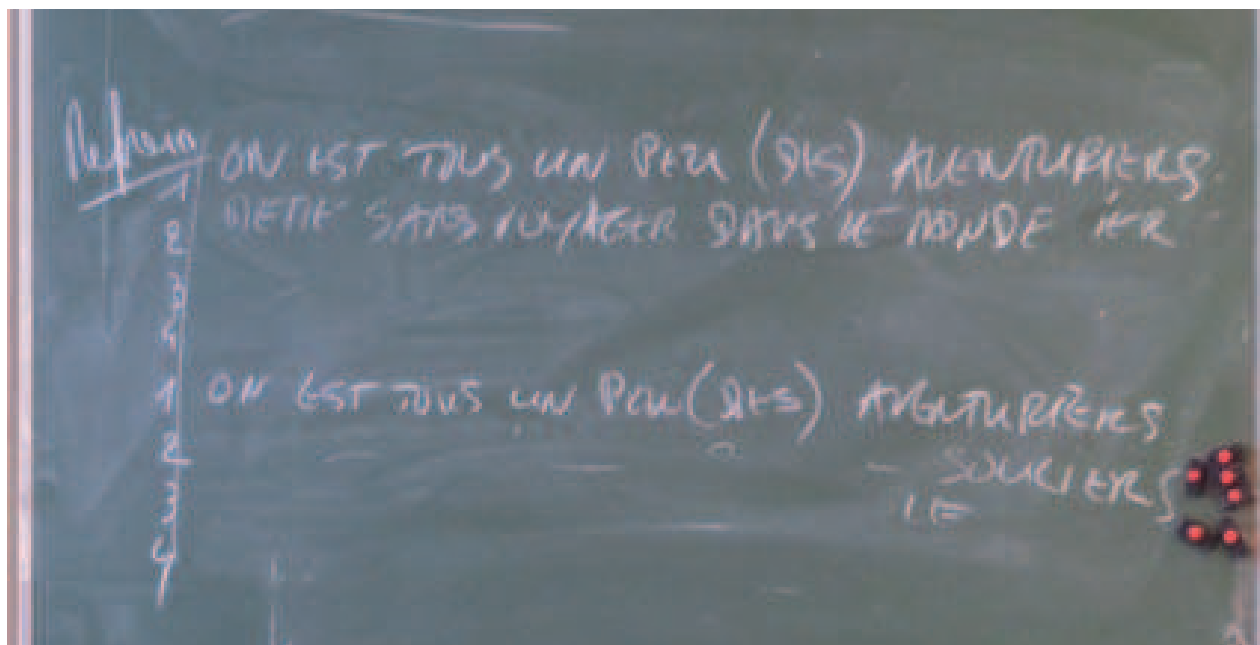 Refrain
1 ON EST TOUS UN PEU (DES) AVENTURIERS.
2 MEME SANS VOYAGER DANS LE MONDE IER
3
4
1 ON EST TOUS UN PEU (DES) AVENTURIERS
2 SOURCIERS
3 IE
4